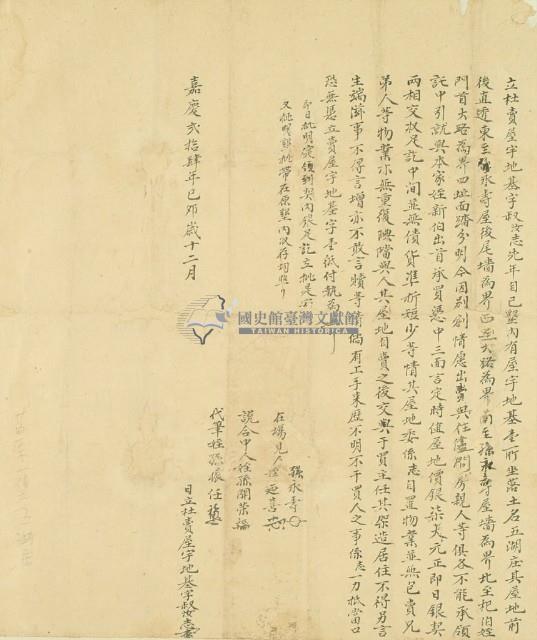 立杜賣屋宇地基字叔汝志先年自己墾內有屋宇地基壹所坐落土名五湖庄其屋地前
後直透東至張永壽屋後尾墻為界西至大路為界南至張永壽屋墻為界北至杞伯姪
門首大路為界四址面踏分明今因別創情愿出賣與任儘問房親人等俱各不能承領
託中引就與本家姪新伯出首承買憑中三面言定時值屋地價銀柒大元正即日銀契
兩相交收足訖中間並無債貨準折短少等情其屋地委係志自置物業並無包賣兄
弟人等物業亦無重復典當與人其屋地自賣之後交與于買主任其架造居住不得另言
生端滋事不得言增亦不敢言贖等情倘有上手來歷不明不干買人之事係志一力抵當口
恐無憑立賣屋宇地基字壹紙付執為
即日批明實領到契內銀足訖立批是
又批明 批帶在原墾內 存 照
國史館臺灣文獻館
TAIWAN HISTORICA
在場見人 張永壽
姪 廷喜
說合中人姪孫開榮
代筆姪孫振任
嘉慶弍拾肆年己卯歲十二月
日立杜賣屋宇地基字叔汝志